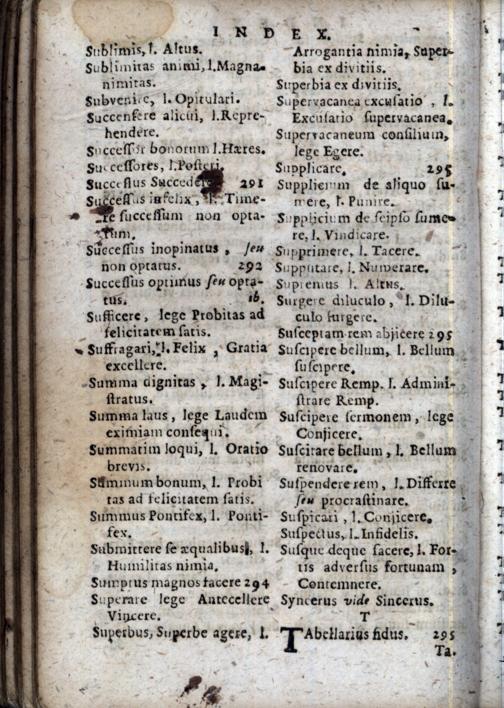 INDEX.
Sublimis, l. Altus.
Sublimitas animi, l. Magna-
nimitas.
Subvenire, l. Opitulari.
Succensere alicui, l. Repre-
hendere.
Successor bonorum l. Hæres.
Successores, l. Posteri.
Successus Succedere 291
Successus infelix, l. Time-
re successum non opta-
tum.
Successus inopinatus, seu
non optatus. 292
Successus optimus seu opta-
tus. ib.
Sufficere, lege Probitas ad
felicitatem satis.
Suffragari, l. Felix, Gratia
excellere.
Summa dignitas, l. Magi-
stratus.
Summa laus, lege Laudem
eximiam consequi.
Summatim loqui, l. Oratio
brevis.
Summum bonum, l. Probi
tas ad felicitatem satis.
Summus Pontifex, l. Ponti-
fex.
Submittere se æqualibus, l.
Humilitas nimia.
Sumptus magnos facere 294
Superare lege Antecellere
Vincere.
Superbus, Superbe agere, l.
Arrogantia nimia, Super-
bia ex divitiis.
Superbia ex divitiis.
Supervacanea excusatio, l.
Excusatio supervacanea.
Supervacaneum consilium,
lege Egere.
Supplicare. 295
Supplicium de aliquo su-
mere, l. Punire.
Supplicium de seipso sume-
re, l. Vindicare.
Supprimere, l. Tacere.
Supputare, l. Numerare.
Supremus l. Altus.
Surgere diluculo, l. Dilu-
culo surgere.
Susceptam rem abjicere 295
Suscipere bellum, l. Bellum
suscipere.
Suscipere Remp. l. Admini-
strare Remp.
Suscipere sermonem, lege
Conjicere.
Suscitare bellum, l. Bellum
renovare.
Suspendere rem, l. Differre
seu procrastinare.
Suspicari, l. Conjicere.
Suspectus, l. Infidelis.
Susque deque facere, l. For-
tis adversus fortunam,
Contemnere.
Syncerus vide Sincerus.
T
TAbellarius fidus. 295
Ta.